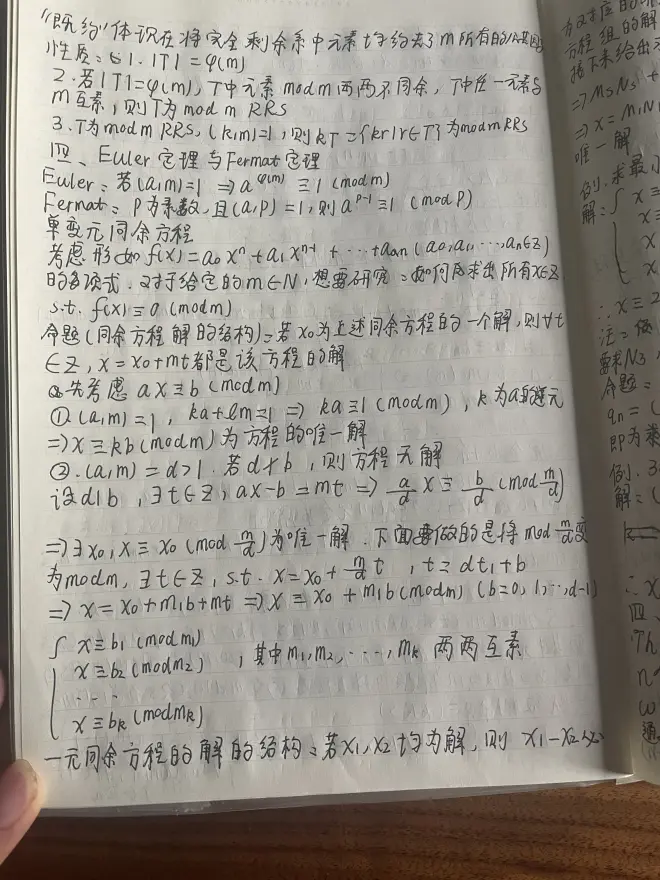 “既约”体现在将完全剩余系中元素均约去了m所有的公因
性质: 1. |T| = φ(m)
2. 若|T|=φ(m), T中元素mod m两两不同余, T中任一元素与
m互素, 则T为mod m RRS
3. T为mod m RRS, (k,m)=1, 则kT={kr|r∈T}为mod m RRS
四、Euler定理与Fermat定理
Euler: 若(a,m)=1 ⇒ a^φ(m) ≡1 (mod m)
Fermat: P为素数, 且(a,p)=1, 则a^(p-1)≡1 (mod p)
单变元同余方程
考虑形如f(x)=a₀xⁿ+a₁xⁿ⁻¹+…+aₙ (a₀,a₁,…,aₙ∈Z)
的多项式. 对于给定的m∈N, 想要研究: 如何求出所有x∈Z
s.t. f(x)≡0 (mod m)
命题(同余方程解的结构): 若x₀为上述同余方程的一个解, 则∀t
∈Z, x=x₀+mt都是该方程的解
先考虑 ax≡b (mod m)
①. (a,m)=1, ka+lm=1 ⇒ ka≡1 (mod m), k为a的逆元
⇒x≡kb(mod m)为方程的唯一解
②. (a,m)=d>1. 若d∤b, 则方程无解
设d|b, ∃t∈Z, ax-b=mt ⇒ a/d x≡ b/d (mod m/d)
⇒∃x₀, x≡x₀(mod m/d)为唯一解. 下面要做的是将mod m/d变
为mod m, ∃t∈Z, s.t. x=x₀+m/d t, t=dt₁+b
⇒ x=x₀+m₁b+mt ⇒x≡x₀+m₁b(mod m) (b=0,1,…,d-1)
{ x≡b₁ (mod m₁)
x≡b₂ (mod m₂), 其中m₁,m₂,…,mₖ两两互素
…
x≡bₖ (mod mₖ)
一元同余方程的解的结构: 若x₁,x₂均为解, 则 x₁-x₂
方程组的解
接下来给出
⇒ x=M₁N₁
唯一解
例. 求最小
解: { x≡
x
x
∴ x≡2
注:
要求N₃,
命题:
qₙ=(
即为
例. 3
解: (
∴ x
四、
Th
n
w
通